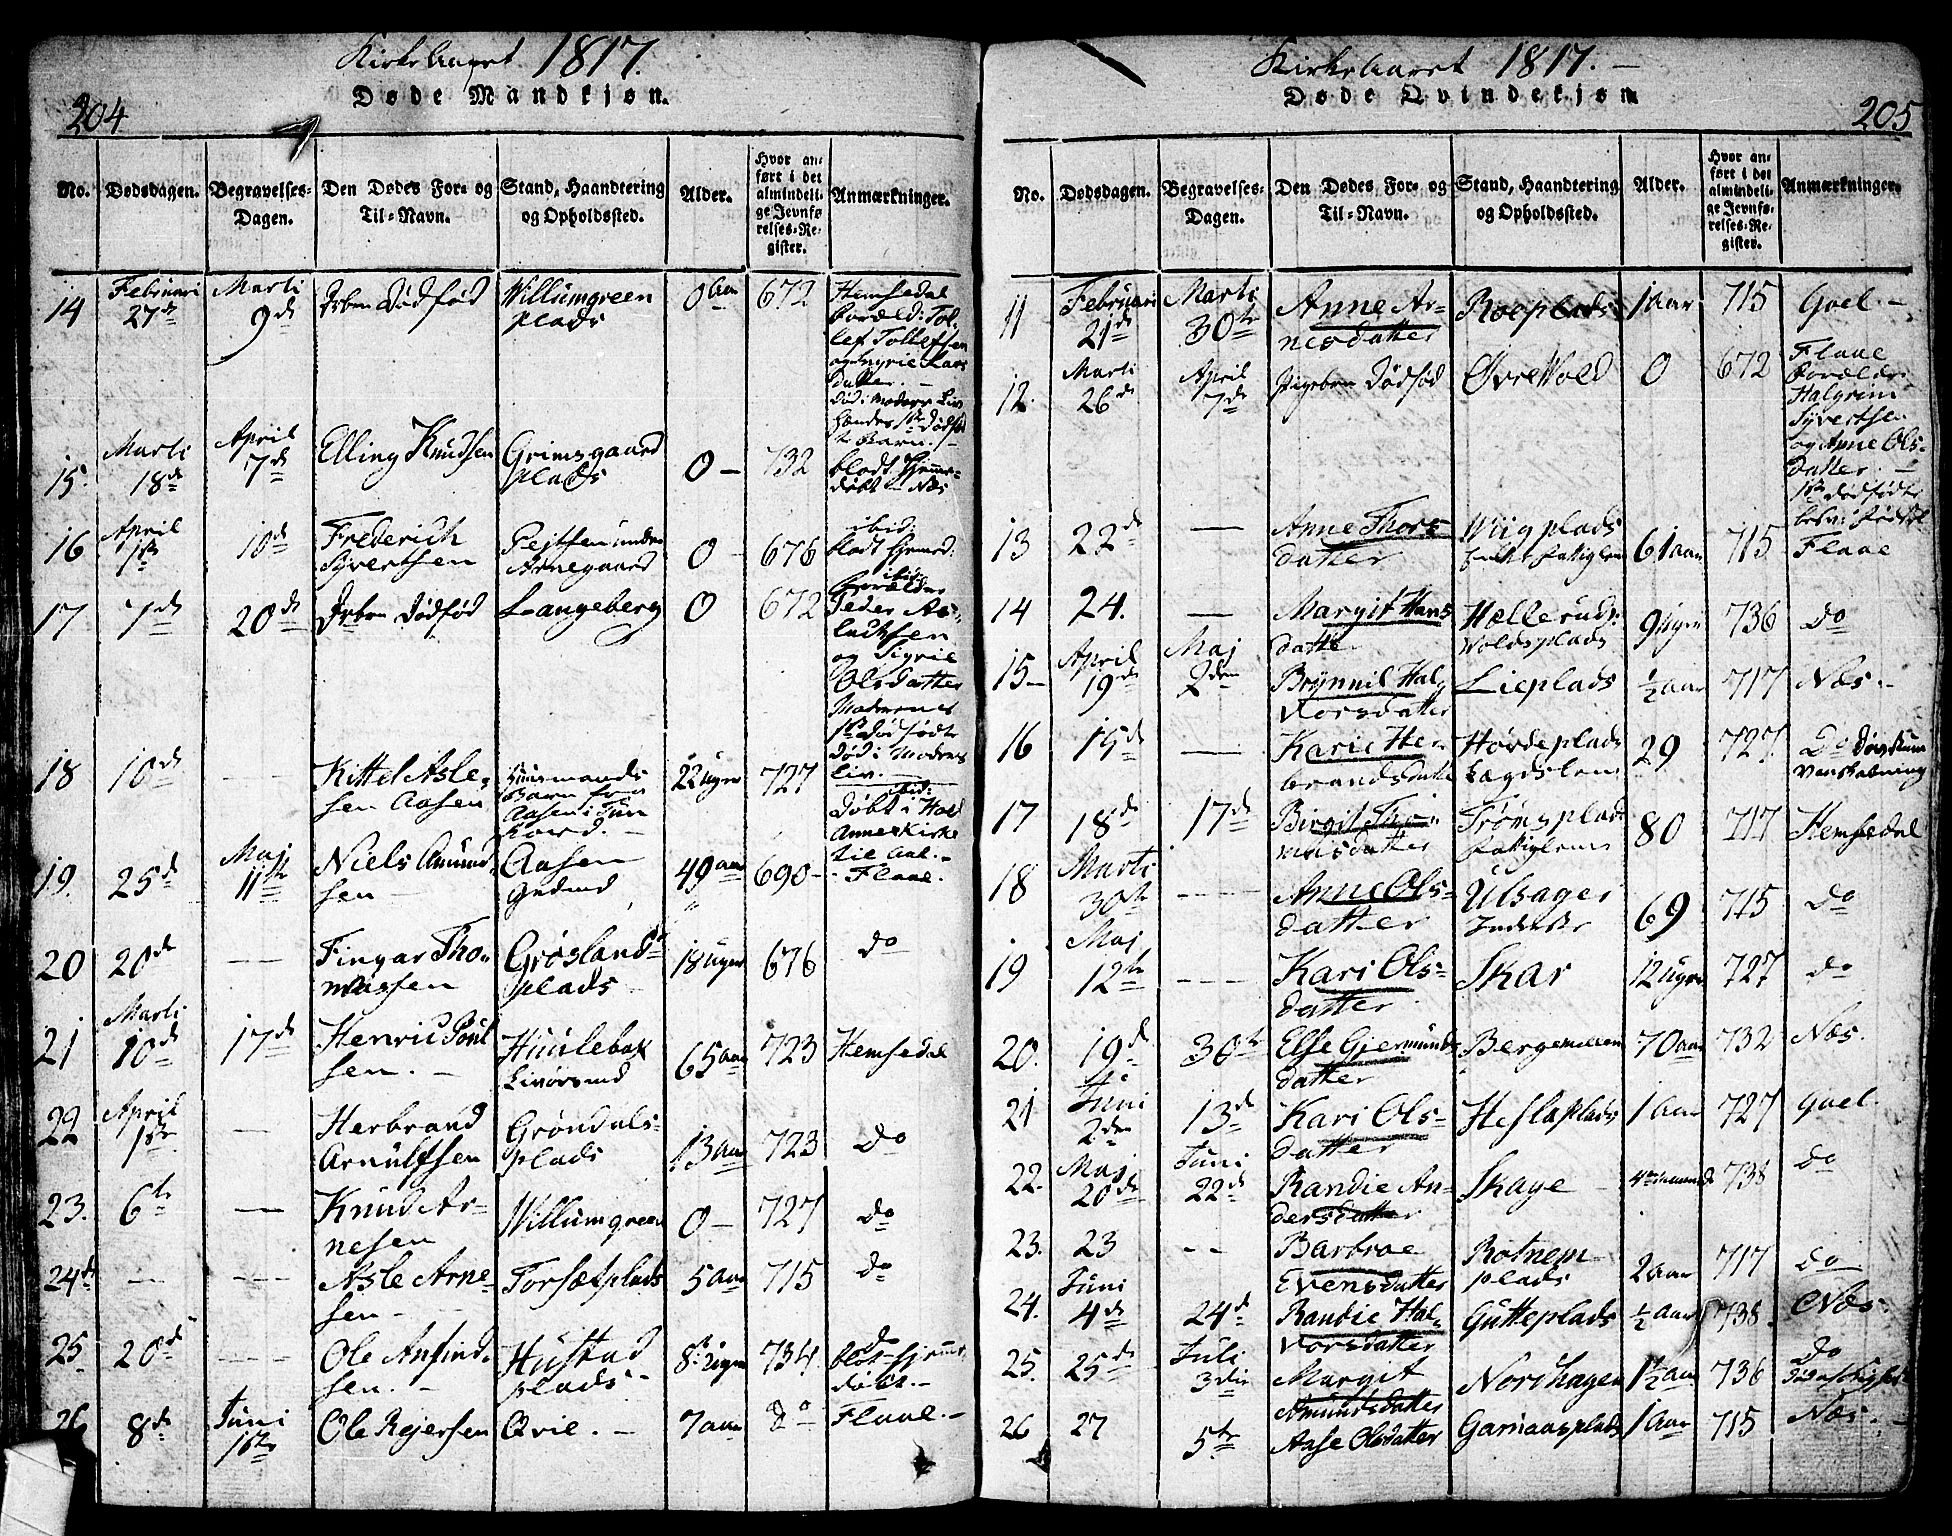 Kirke Aaret 1817.
Døde Mandkjøn.
204
No. Dødsdagen. Begravelses-Dagen. Den Dødes For- og Til-Navn. Stand, Haandtering og Opholdssted. Alder. Hvor anført i det almindelige Jevnførelses-Register. Anmærkninger.
14 Februari 27de Marti 9de Drbrn Dødfød Willumgreen plads 0 Aar 672 Hemsedal
Foræld: Tol
lef Tollefsen
datter. –
Død i Moders Liv
15. Marti 18de April 7de Elling Knudsen Grimsgaard plads 0 – 732 blodt hjemme-
døbt – Næs
16 April 1ste 10de Frederich Syvertsen Arnegaard 0 – 676 ibid:
blodt hjemd:
17 7de 20de Drbrn Dødfød Langeberg 0 672 ibid:
Forældre
Peder As-
laksen
og Sigrie
Olsdatter
Moderens
1ste Dødfødte
Død i Moders
Liv. –
18 10de - - - Kittel Asle-
sen Aasen Huusmands
Barn fra
Aasen i 22 Uger 727 ibid:
Døbt i Hol
Annex Kirke
til Aal. –
19. 25de Maj 11te Niels Amund-
sen – Aasen 49 aar 690 – Flaae.
20 20de - - Fingar Tho-
massen Grøslands-
plads – 18 Uger 676 do
21 Marti 10de 17de Henric Poul
sen. – 65 aar 723 Hemsedal
22 April 1ste — Herbrand
Arnulfsen Grøndals-
plads 13 aar 723 do
23. 6te — Knud Ar-
nesen Willumgreen 0 – 727 do
24de – – - - - Asle Arne-
sen – Forsætplads 5 aar 715 do
25. 20de - - - Ole Anfind-
sen. – Hustad
plads – 8te Uger 734. do
døbt. –
26 8de Juni 15de Ole Rejersen Qvie. – 7 aar do Flaae. –
Kirke Aaret 1817. –
Døde Qvindekjøn
205
No. Dødsdagen. Begravelses-Dagen. Den Dødes For- og Til-Navn. Stand, Haandtering og Opholdssted. Alder. Hvor anført i det almindelige Jevnførelses-Register. Anmærkninger.
11 Februari 21de Marti 30te Anne Ar-
nesdatter Roeplads 1 aar 715 Goel. –
12. Marti 26de April 7de Pigebrn Dødfød Øvre Vold 0 672 Flaae
Forældre
Halgrim
Syvertse
og Anne Ols-
datter. –
1ste Dødfødte
13 22de — Anne Thors
datter Wiig plads
61 aar 715 Flaae
14 24. — Margit Hans
datte 9 Uger 736 do
15 – April 19de Maj 2den Brynnil Hal-
vorsdatter Lieplads ½ aar 717 Næs. –
16 15de — Karie He
brandsdatte Hovdeplads
Lægdslem 29 727
17 18de 17de Birgit Tho-
masdatter Trømsplads
80 717 Hemsedal
18 Marti 30te - - - - Anne Ols-
datter Ulsager
69 715 do
19 Maj 12te - - - Kari Ols-
datter Skar 12 Uger 727 do
20. 19de 30te Else Gjermunds
datter Bergemellem 70 aar 732 Næs.
21 Juni 2den 13de Kari Ols-
datter Heslaplads 1 aar 727 Goel.
22. Maj 20de Juni 22de Randie An-
dersdatter Skage – 738 do
23. 23 - - Barbroe
Evensdatter Rotnem
plads 2 aar 717 do
24. Juni 4de 24de Randie Hal-
vorsdatter Gutteplads ½ aar 738. Næs.
25. 25de Juli 3die Margit
Amundsdatter Nordhagen 1½ aar 736 do
26 27 5te Aase Olsdatter Garnaasplads 1 aar 715 Næs. –